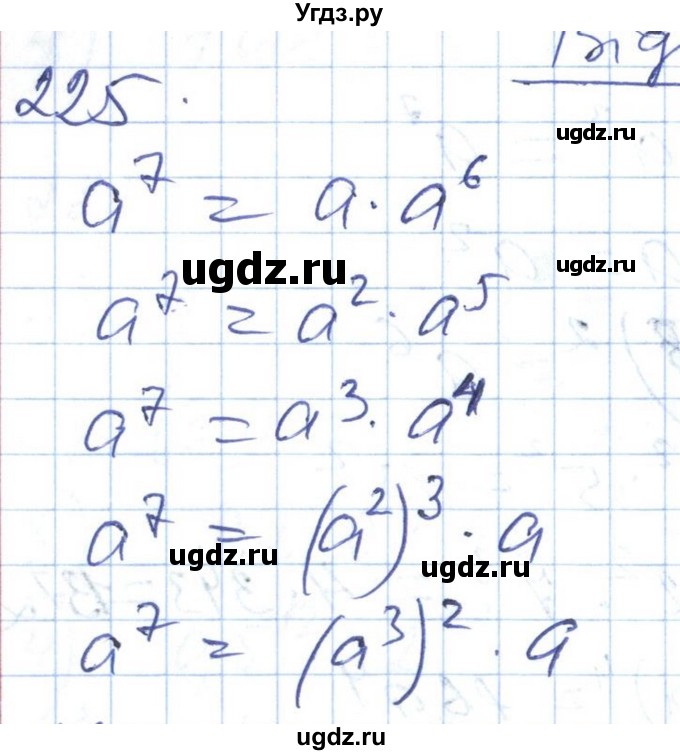 Угдз.ру
225.
ugdz.ru
a⁷ = a · a⁶
ugdz.ru
ugdz.ru
a⁷ = a² · a⁵
a⁷ = a³ · a⁴
a⁷ = (a²)³ · a
ugdz.ru
ugdz.ru
a⁷ = (a³)² · a
ugdz.ru